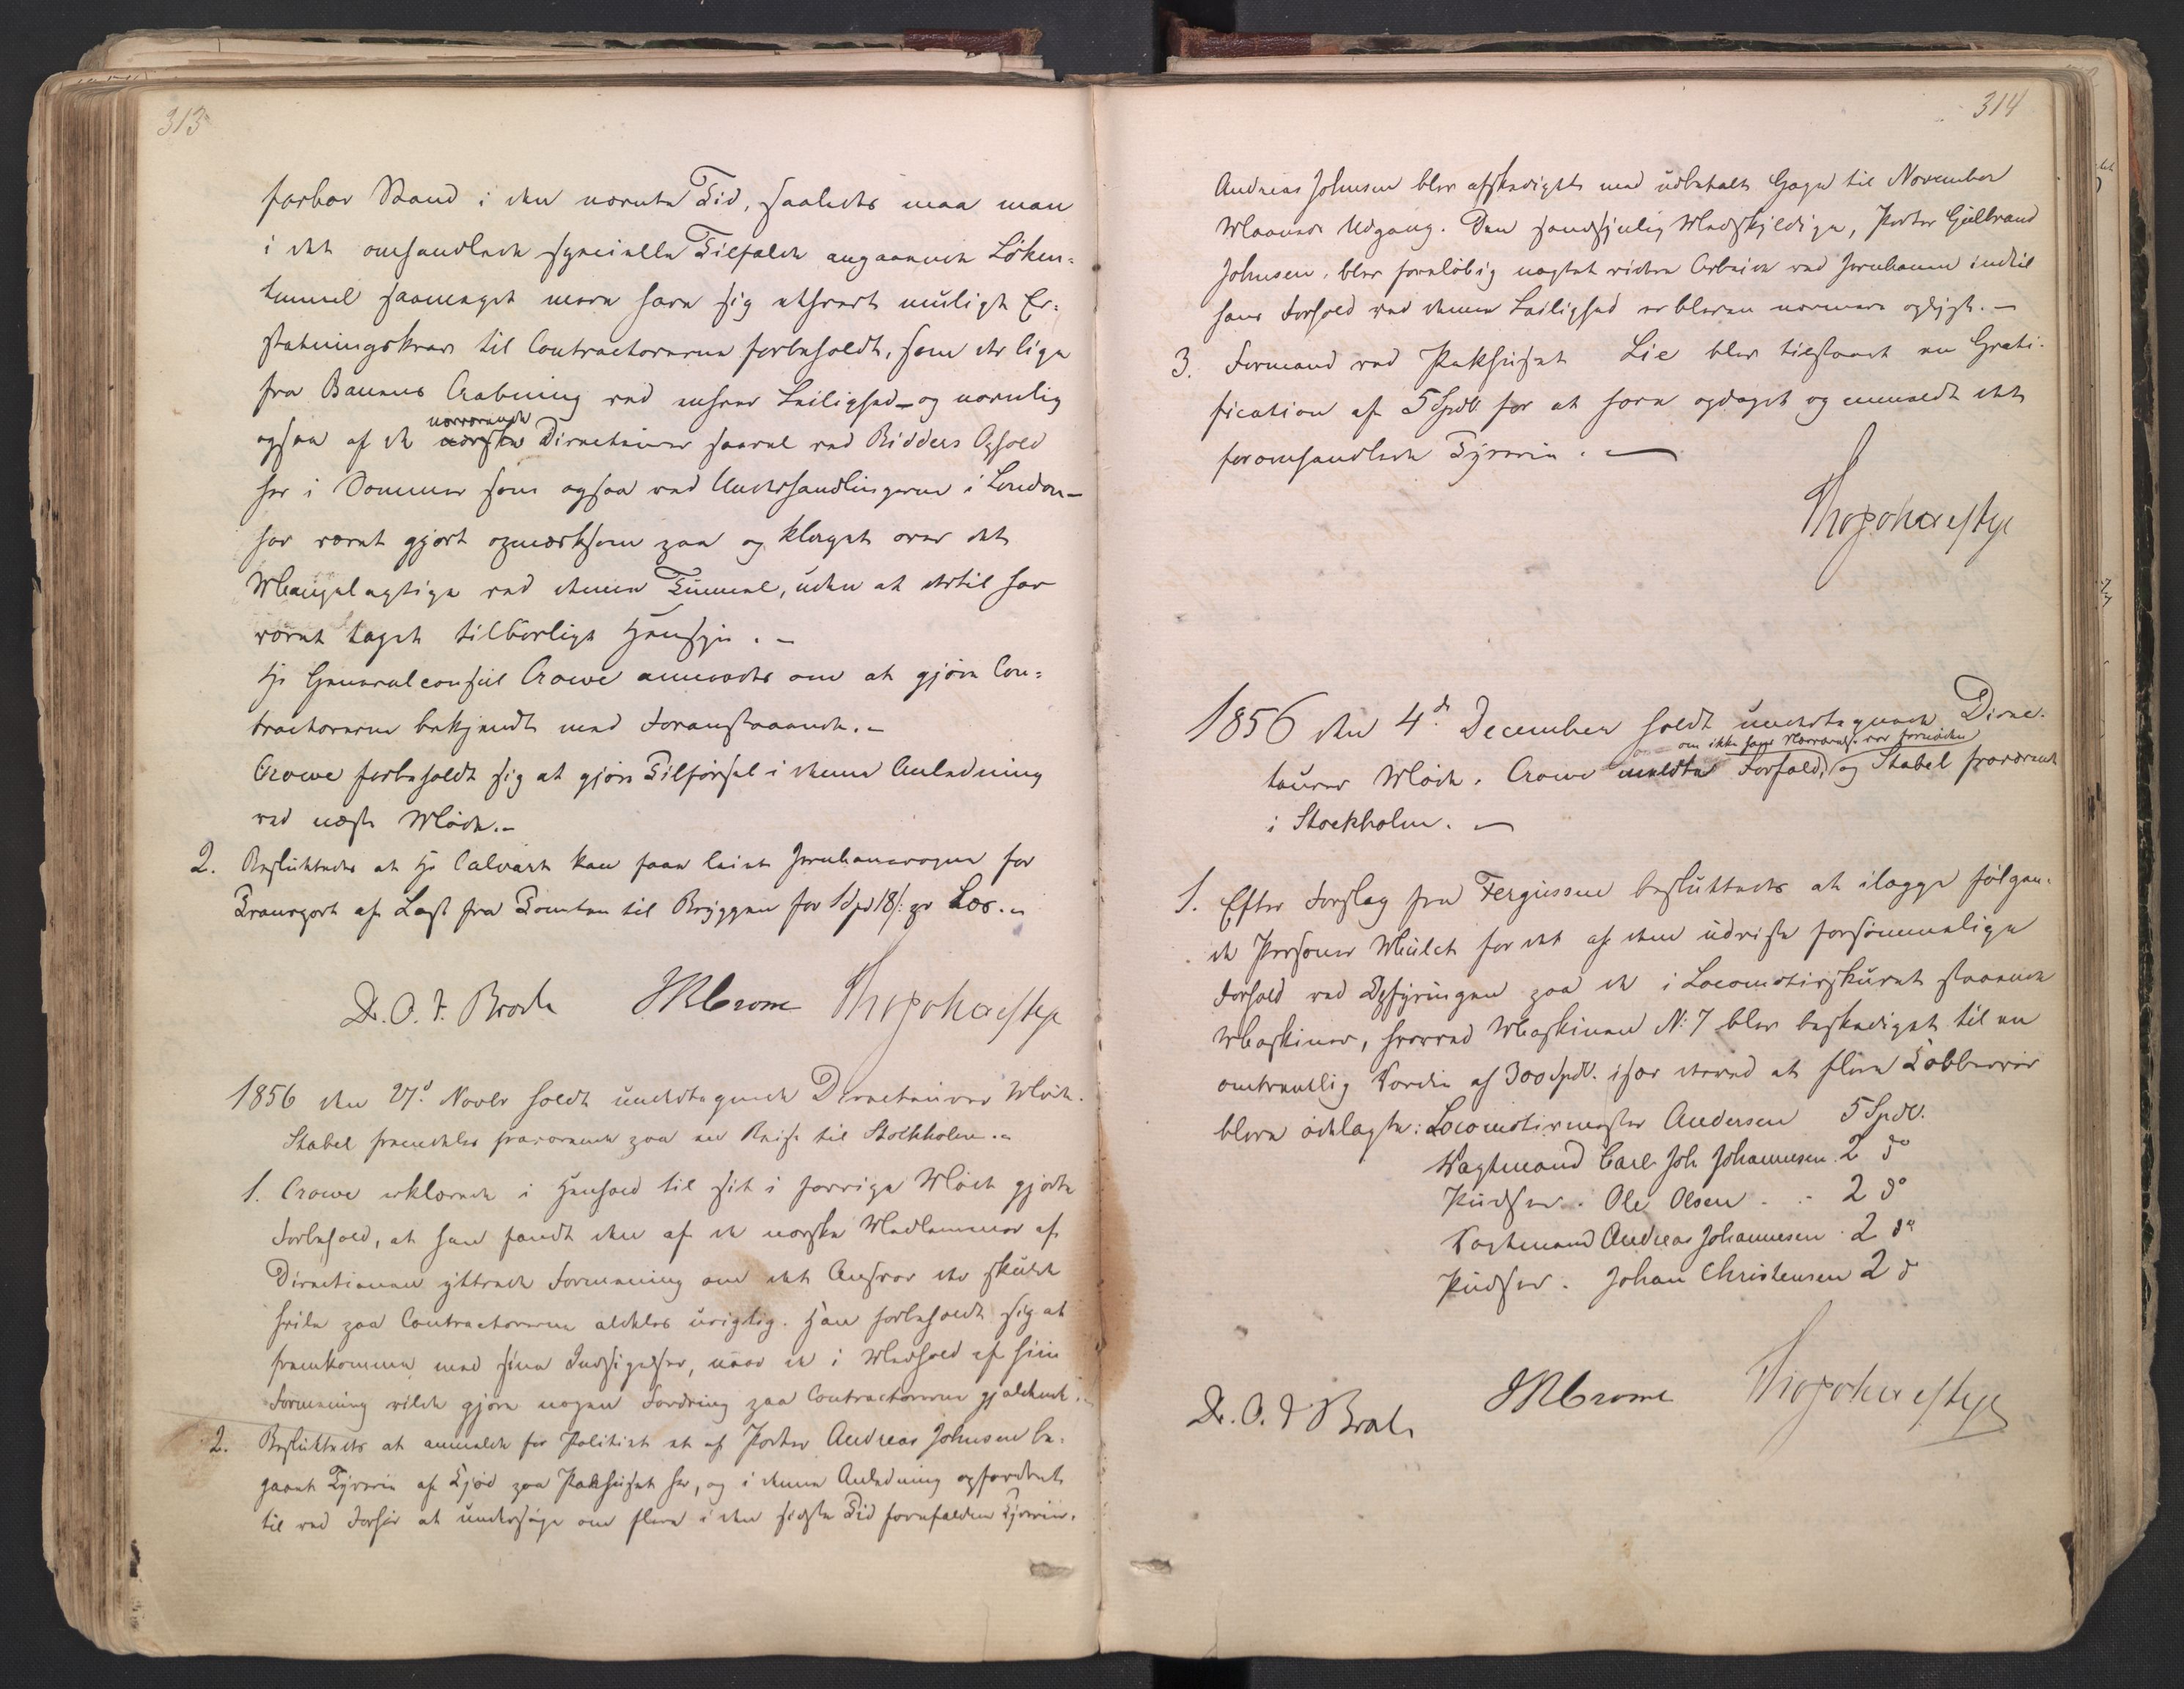 313
farbar Stand i den nævnte Tid, saaledes maa man
i det omhandlede specielle Tilfælde angaaende Löken-
tunnel saameget mere have sig ethvert muligt Er-
statningskrav til Contractorerne forbeholdt, som der lige
fra Banens Aabning ved enhver Leilighed – og navnlig
nærværende
ogsaa af de norske Directeurer saavel ved Bidders Ophold
her i Sommer som ogsaa ved Underhandlingerne i London –
har været gjort opmærksom paa og klaget over det
Mangelagtige ved denne Tunnel, uden at dertil har
været taget tilbørligt Hensyn. –
Hr Generalconsul Crowe anmodes om at gjøre Con-
tractorerne bekjendt med Foranstaaende. –
Crowe forbeholdt sig at gjøre Tilførsel i denne Anledning
ved næste Møde. –
2. Besluttedes at Hr Calvert kan faae leiet Jernbanevogne for
Transport af Last fra Tomten til Bryggen for 1 Spd 18 ß pr Læs. –
Dr. O. J. Broch JRCrowe Thojohaestye
1856 den 27d Novbr holdt undertegnede Directeurer Møde.
Stabel fremdeles fraværende paa en Reise til Stockholm. –
1. Crowe erklærede i Henhold til sit i forrige Møde gjorte
Forbehold, at han fandt den af de norske Medlemmer af
Directionen yttrede Formening om det Ansvar der skulde
hvile paa Contractorerne aldeles urigtig. Han forbeholdt sig at
fremkomme med sine Indsigelser, naar de i Medhold af hiin
Formening vilde gjøre nogen Fordring paa Contractorerne gjældende. –
2. Besluttedes at anmelde for Politiet et af Porter Andreas Johnsen be-
gaaet Tyverie af Kjød paa Pakhuset her, og i denne Anledning opfordret
til ved Forhør at undersøge om flere i den sidste Tid forefaldne Tyverier.
314
Andreas Johnsen blev afskediget med udbetalt Gage til November
Maaneds Udgang. Den sandsynlig Medskyldige, Porter Gulbrand
Johnsen, blev foreløbig nægtet videre Arbeide ved Jernbanen indtil
hans Forhold ved denne Leilighed er bleven nærmere oplyst. –
3. Formand ved Pakhuset Lie blev tilstaaet en Grati-
fication af 5 Spdl for at have opdaget og anmeldt det
foromhandlede Tyverie. –
Thojohaestye
1856 den 4de December holdt undertegnede Direc-
om ikke hans Nærværelse var fornöden
teurer Møde. Crowe meldte Forfald, og Stabel fraværende
i Stockholm. –
1. Efter Forslag fra Fergusson besluttedes at ilægge følgen-
de Personer Mulct for det af dem udviste forsømmelige
Forhold ved Opfyringen paa de i Locomotivskuret staaende
Maskiner, hvorved Maskinen No 7 blev beskadiget til en
omtrentlig Værdie af 300 Spdl. især derved at flere Kobberrør
bleve ødelagte: Locomotivmester Andersen 5 Spdl.
Vagtmand Carl Joh Johannesen 2 do
Pudser. Ole Olsen . - 2 do
Vagtmand Andreas Johannesen 2 do
Pudser. Johan Christensen 2 do
Dr. O. J Broch JRCrowe Thojohaestye